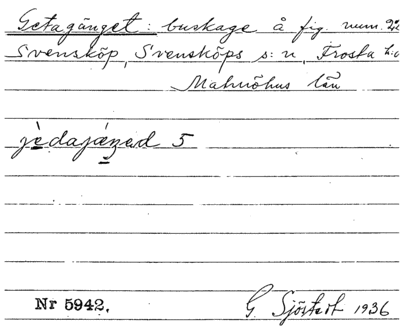 Getagänget: buskage å fig. num. 22
Svensköp, Svensköps s:n, Frosta h:d
Malmöhus län
jèdajáŋad 5
Nr 5942.
G. Sjöstedt 1936